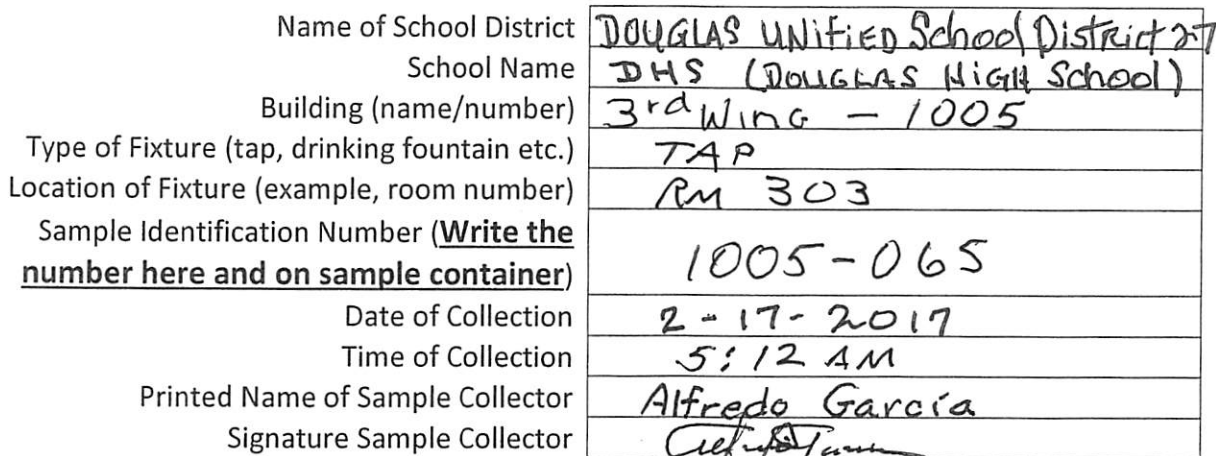 Name of School District DOUGLAS UNIFIED School District 27
School Name DHS (DOUGLAS HIGH School)
Building (name/number) 3rd WING - 1005
Type of Fixture (tap, drinking fountain etc.) TAP
Location of Fixture (example, room number) RM 303
Sample Identification Number (Write the
number here and on sample container) 1005-065
Date of Collection 2-17-2017
Time of Collection 5:12 AM
Printed Name of Sample Collector Alfredo García
Signature Sample Collector